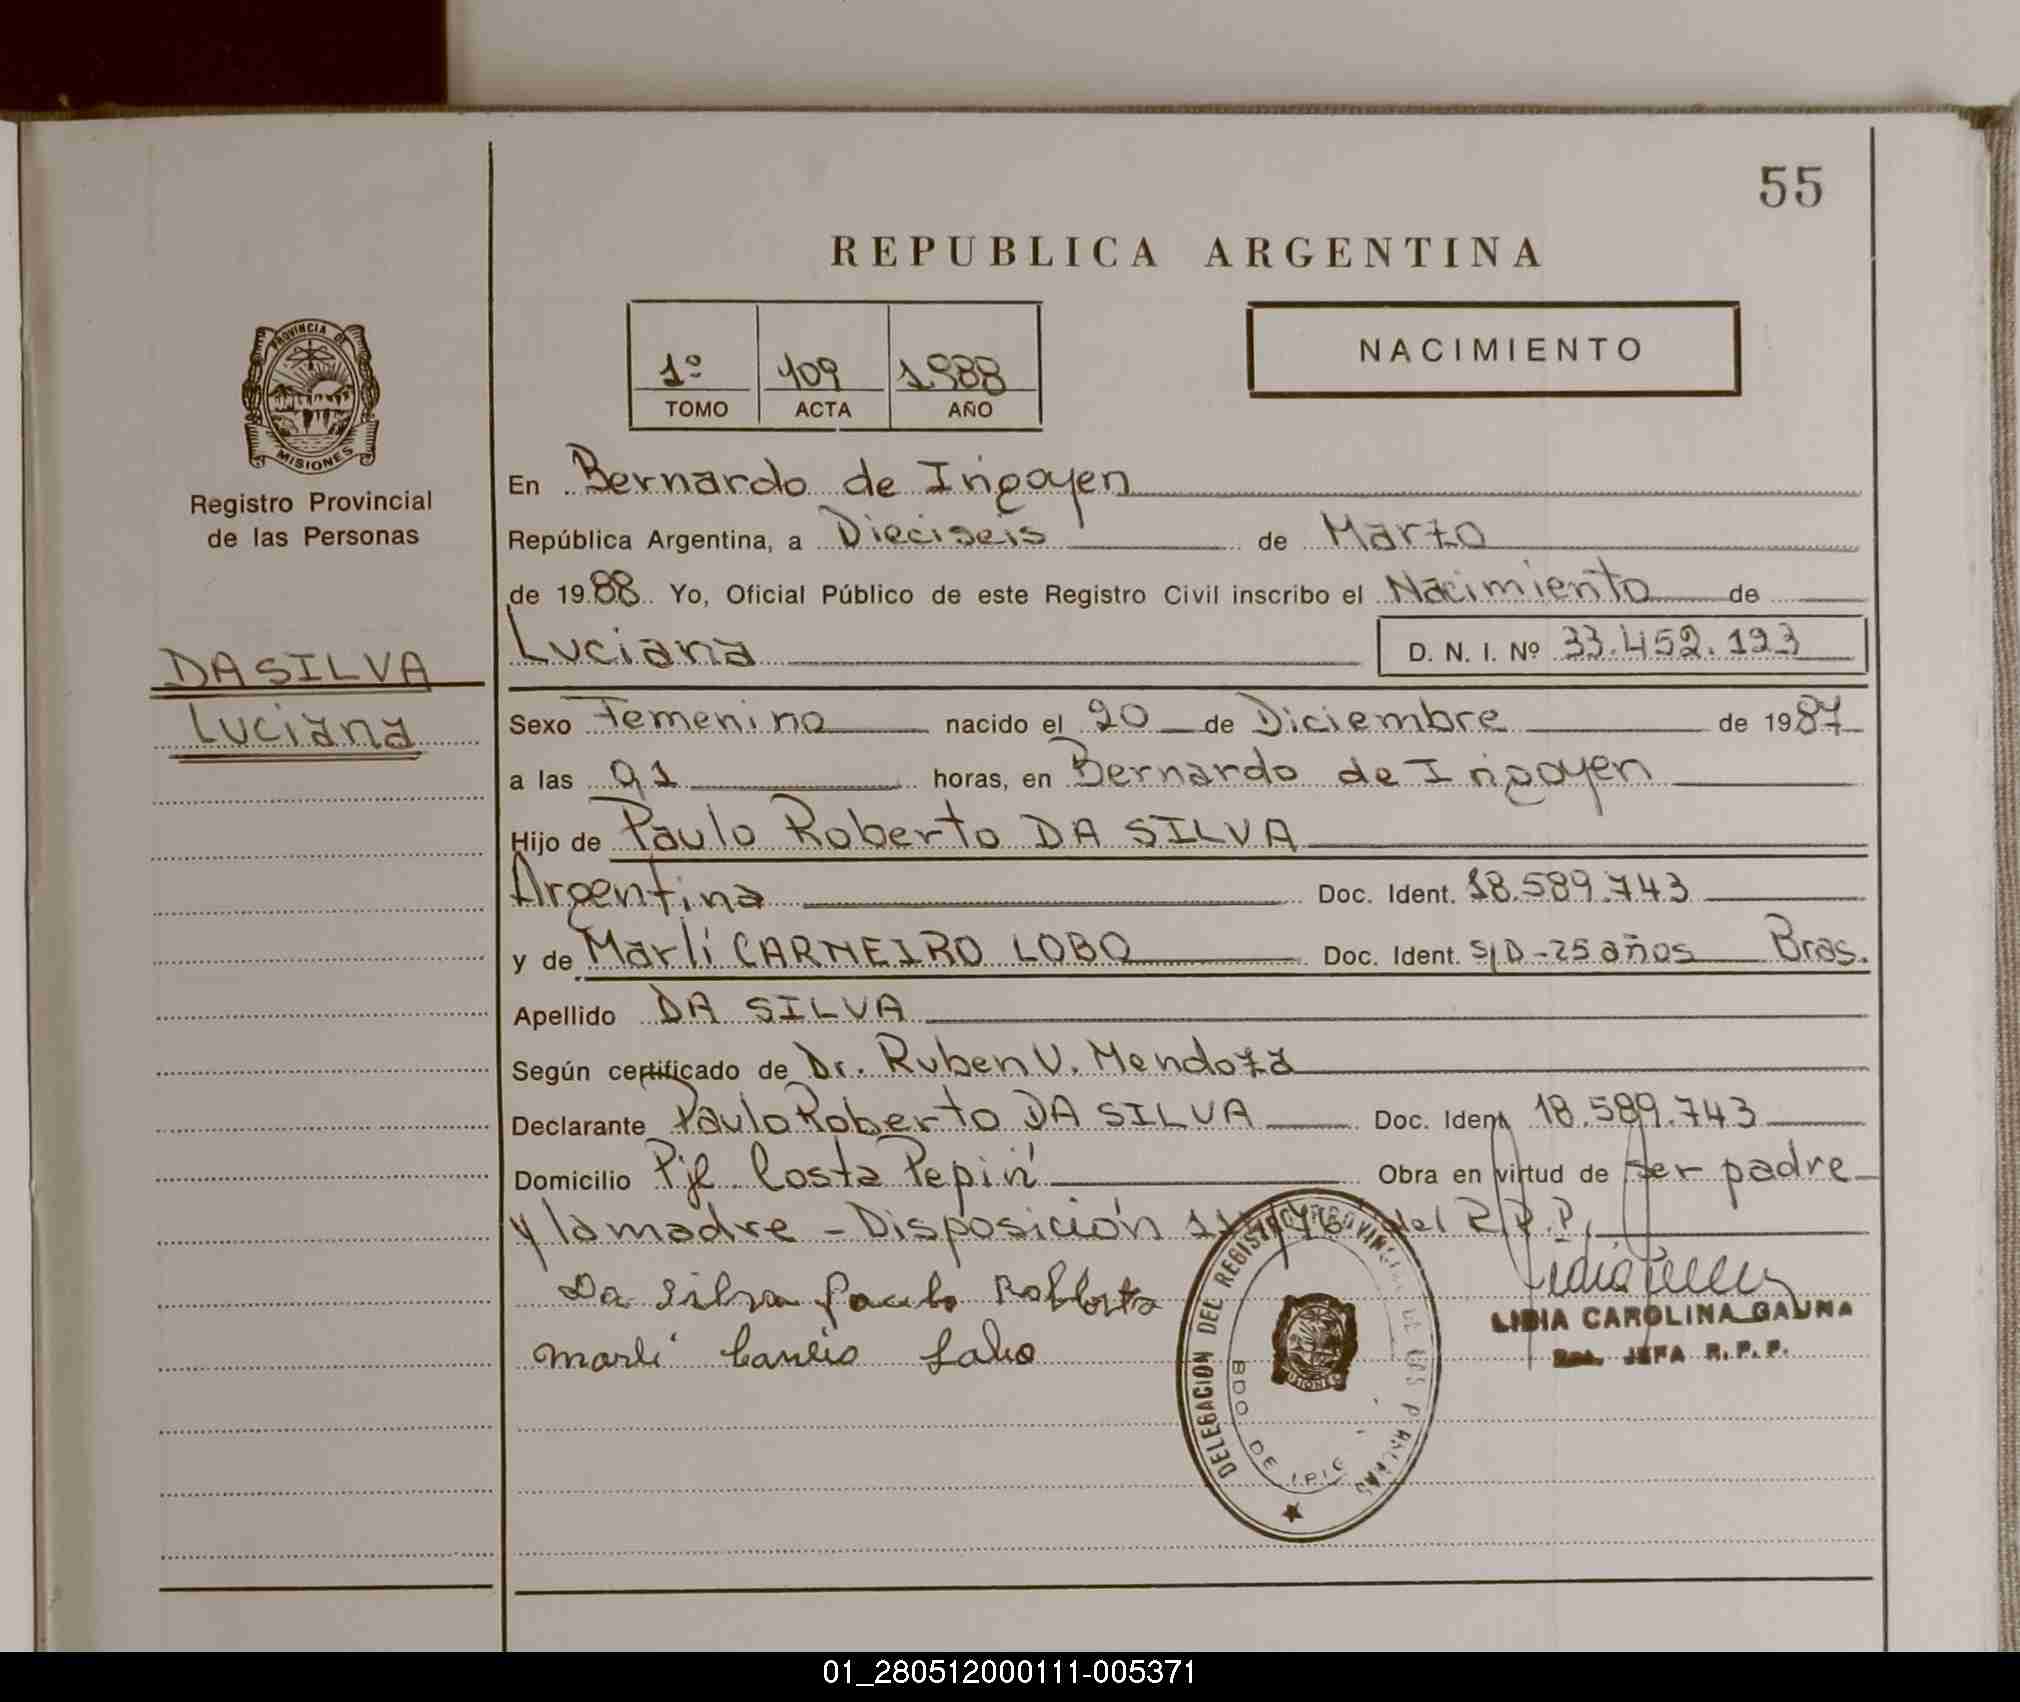 55
REPUBLICA ARGENTINA
1º 109 1988
TOMO ACTA AÑO
NACIMIENTO
PROVINCIA DE
MISIONES
Registro Provincial
de las Personas
DA SILVA
Luciana
En Bernardo de Irigoyen
República Argentina, a Dieciseis de Marzo
de 1988 Yo, Oficial Público de este Registro Civil inscribo el Nacimiento de
Luciana D. N. I. Nº 33.452.123
Sexo Femenino nacido el 20 de Diciembre de 1987
a las 21 horas, en Bernardo de Irigoyen
Hijo de Paulo Roberto DA SILVA
Argentina Doc. Ident. 18.589.743
y de Marli CARNEIRO LOBO Doc. Ident. S/D-25 años Bras.
Apellido DA SILVA
Según certificado de Dr. Ruben V. Mendoza
Declarante Paulo Roberto DA SILVA Doc. Ident. 18.589.743
Domicilio Pje Costa Pepiri Obra en virtud de ser padre
y la madre - Disposición del R.P.P.
Da Silva Paulo Roberto
Marli Lobo
DELEGACION DEL REGISTRO PROVINCIAL DE LAS PERSONAS
BDO DE IRIG
LIDIA CAROLINA GAUNA
JEFA R.P.P.
01_280512000111-005371